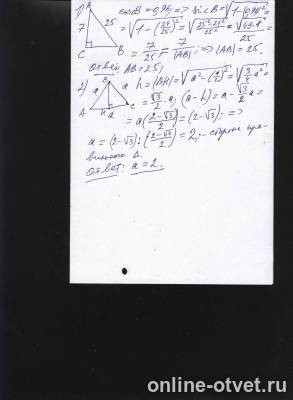 1) A 7 25 C B cos B = 0,96 => sin∠B = √(1-0,96²) =
= √(1-(24/25)²) = √((25²-24²)/25²) = √(49·1)/25 =
= 7/25 = 7/|AB|; => |AB| = 25.
Ответ: AB = 25.
2) B a a A H a C h = |BH| = √(a²-(a/2)²) = √(3/4 a²) =
= √3/2 a; (a-h) = a - √3/2 a =
= a((2-√3)/2) = (2-√3); =>
a = (2-√3) : ((2-√3)/2) = 2; - сторона пра-
вильного Δ.
Ответ: a = 2.
online-otvet.ru